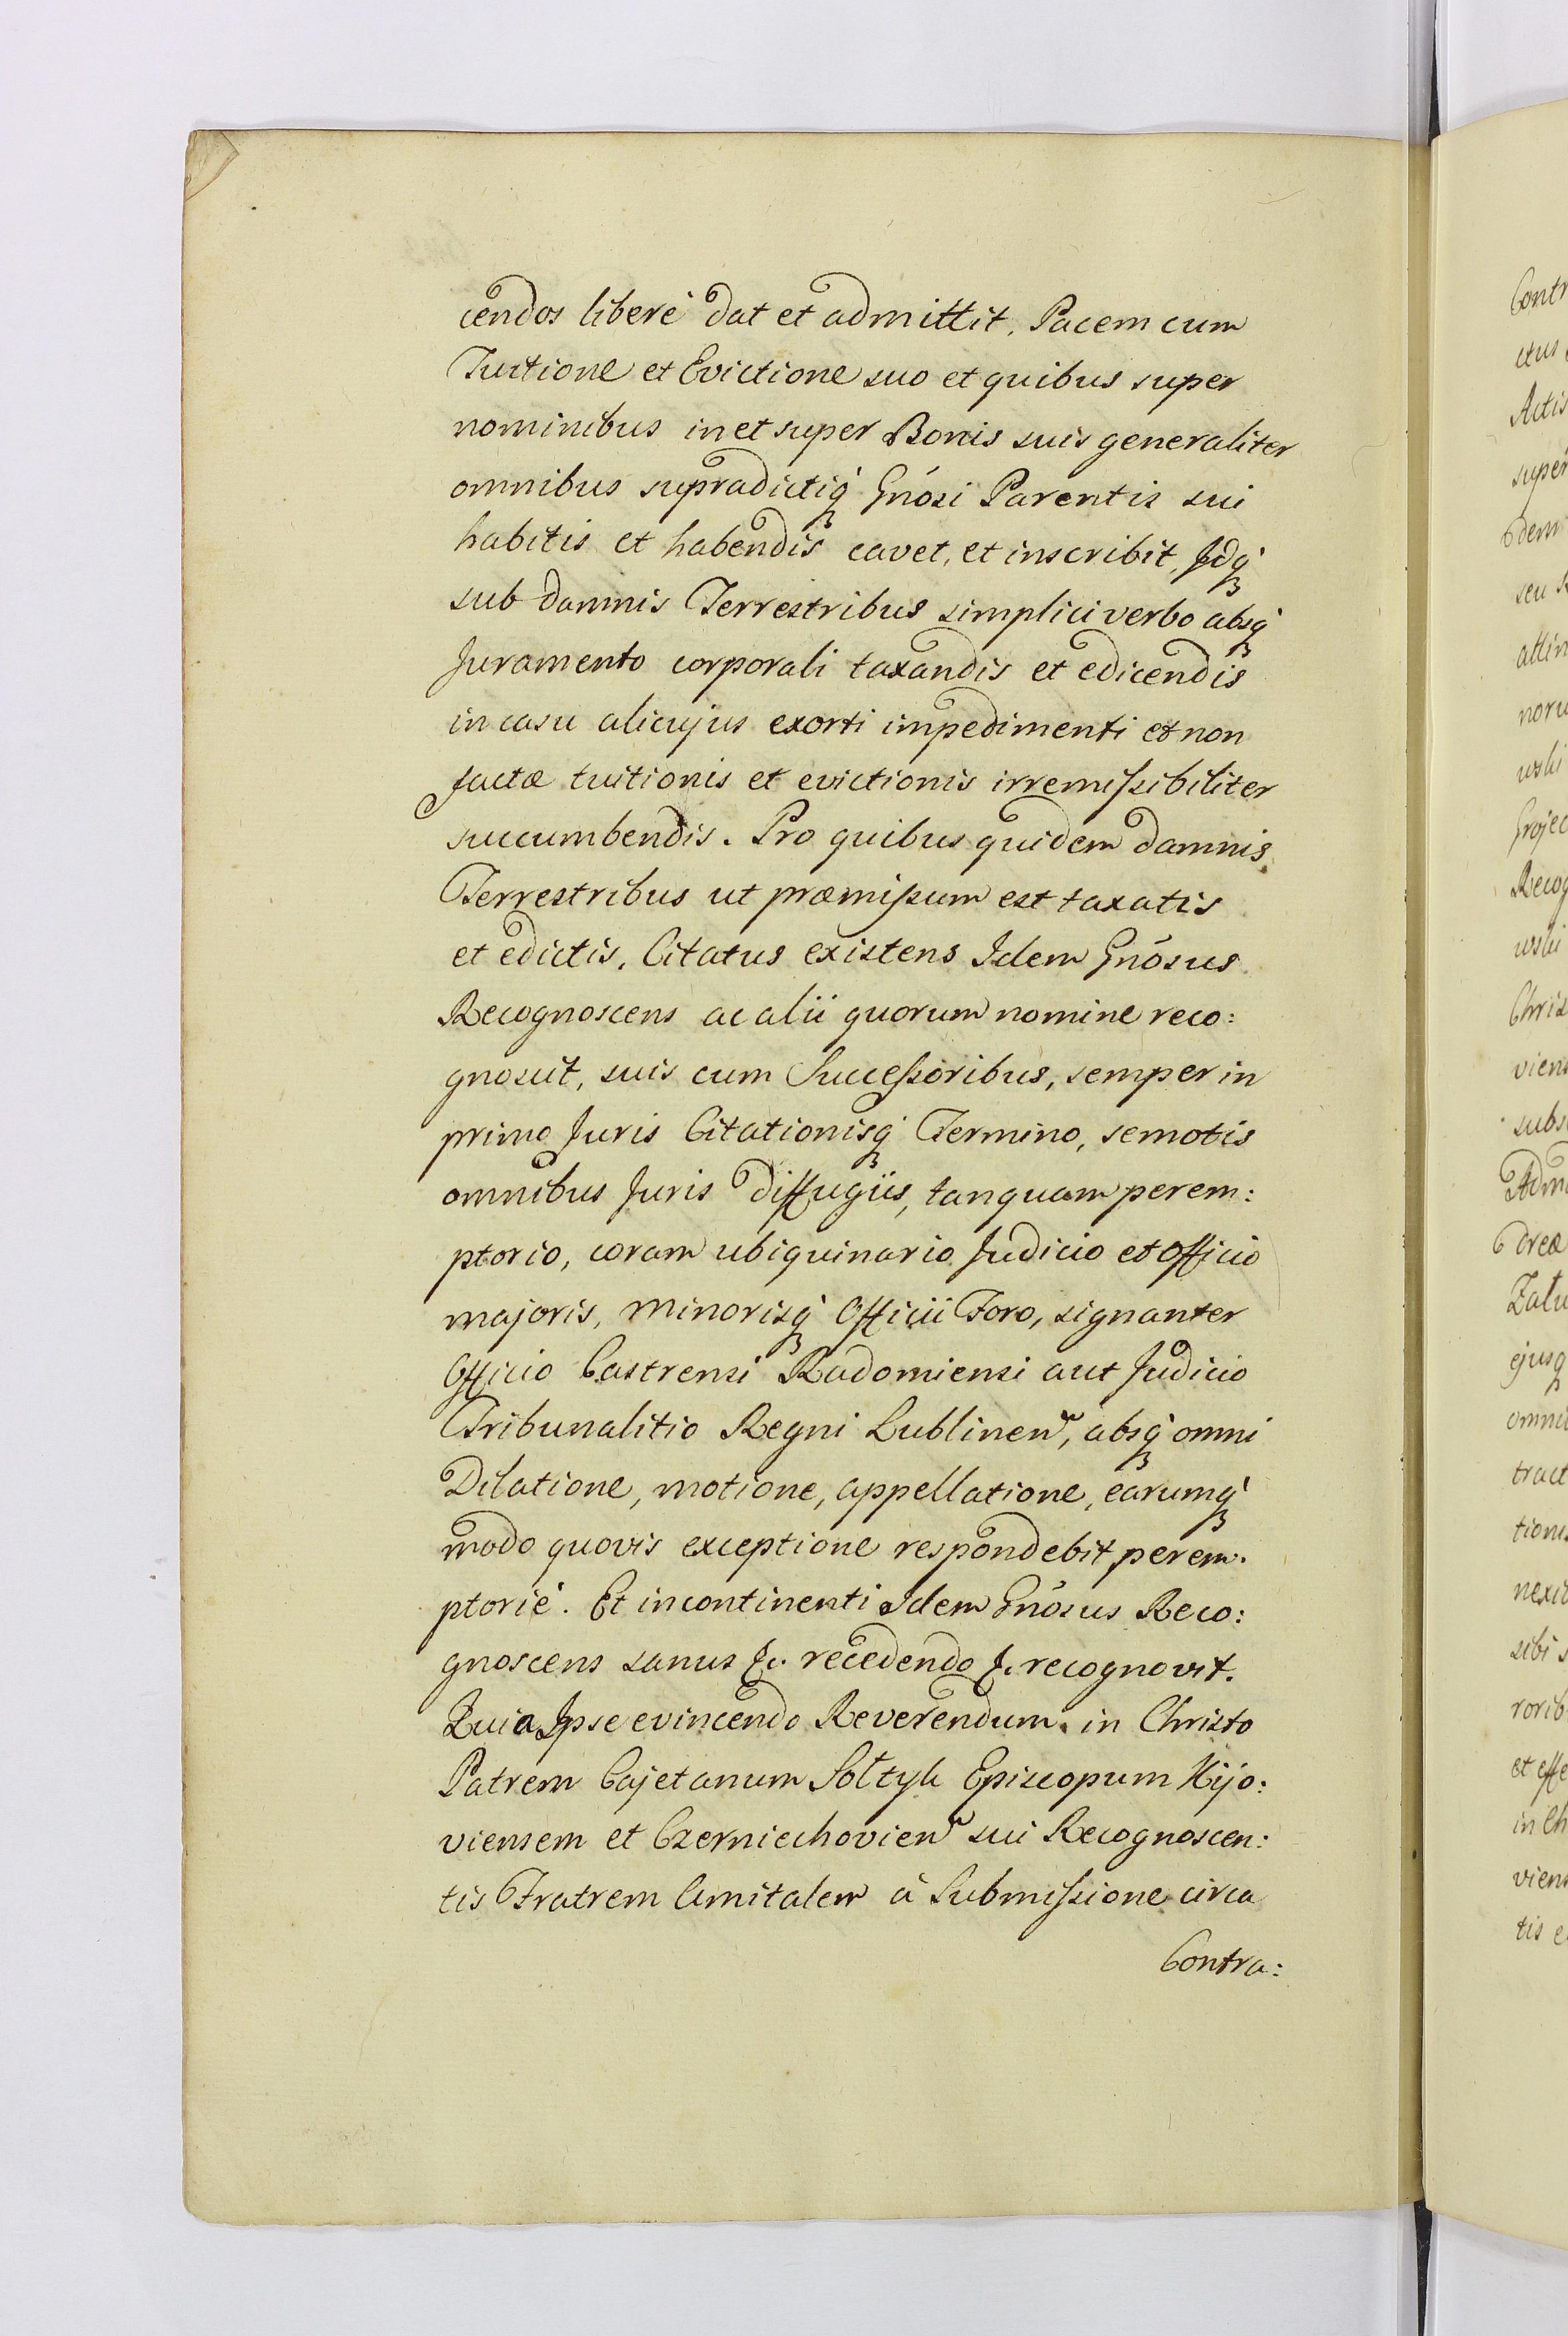 cendos liberè dat et admittit. Pacem cum
Tuitione et Evictione suo et quibus super
nominibus in et super Bonis suis generaliter
omnibus supradictiq́ꝫ Gnósi Parentis sui
habitis et habendis cavet, et inscribit, Idq́ꝫ
sub damnis Terrestribus simplici verbo absq́ꝫ
Juramento corporali taxandis et edicendis
in casu alicujus exorti impedimenti et non
factæ tuitionis et evictionis irremiſsibiliter
succumbendis. Pro quibus quidem damnis
Terrestribus ut præmiſsum est taxatis
et edictis, Citatus existens Idem Gnósus
Recognoscens ac alii quorum nomine reco:
gnoscit, suis cum Succeſsoribus, semper in
primo Juris Citationisq́ꝫ Termino, semotis
omnibus Juris diffugiis, tanquam perem:
ptorio, coram ubiquinario Judicio et Officio
majoris, minorisq́ꝫ Officii Foro, signanter
Officio Castrensi Radomiensi aut Judicio
Tribunalitio Regni Lublinen, absq́ꝫ omni
Dilatione, motione, appellatione, earumq́ꝫ
modo quovis exceptione respondebit perem.
ptoriè. Et incontinenti Idem Gnósus Reco:
gnoscens sanus &. recedendo &. recognovit.
Quia Ipse evincendo Reverendum in Christo
Patrem Cajetanum Sołtyk Episcopum Kijo:
viensem et Czerniechovien sui Recognoscen:
tis Fratrem Amitalem à Submiſsione circa
Contra: